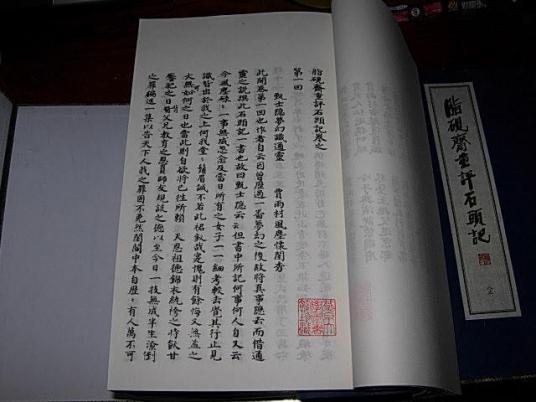 脂硯齋重評石頭記卷之
第一回
甄士隱夢幻識通靈　賈雨村風塵懷閨秀
此開卷第一回也作者自云因曾歷過一番夢幻之後故將真事隱去而借通
靈之說撰此石頭記一書也故曰甄士隱云云但書中所記何事何人自又云
今風塵碌碌一事無成忽念及當日所有之女子一一細考較去覺其行止見
識皆出於我之上何我堂堂鬚眉誠不若此裙釵哉實愧則有餘悔又無益之
大無如何之日也當此則自欲將已往所賴　天恩祖德錦衣紈袴之時飫甘
饜肥之日背父兄教育之恩負師友規談之德以至今日一技無成半生潦倒
之罪編述一集以告天下人我之罪固不免然閨閣中本自歷歷有人萬不可
脂硯齋重評石頭記
2